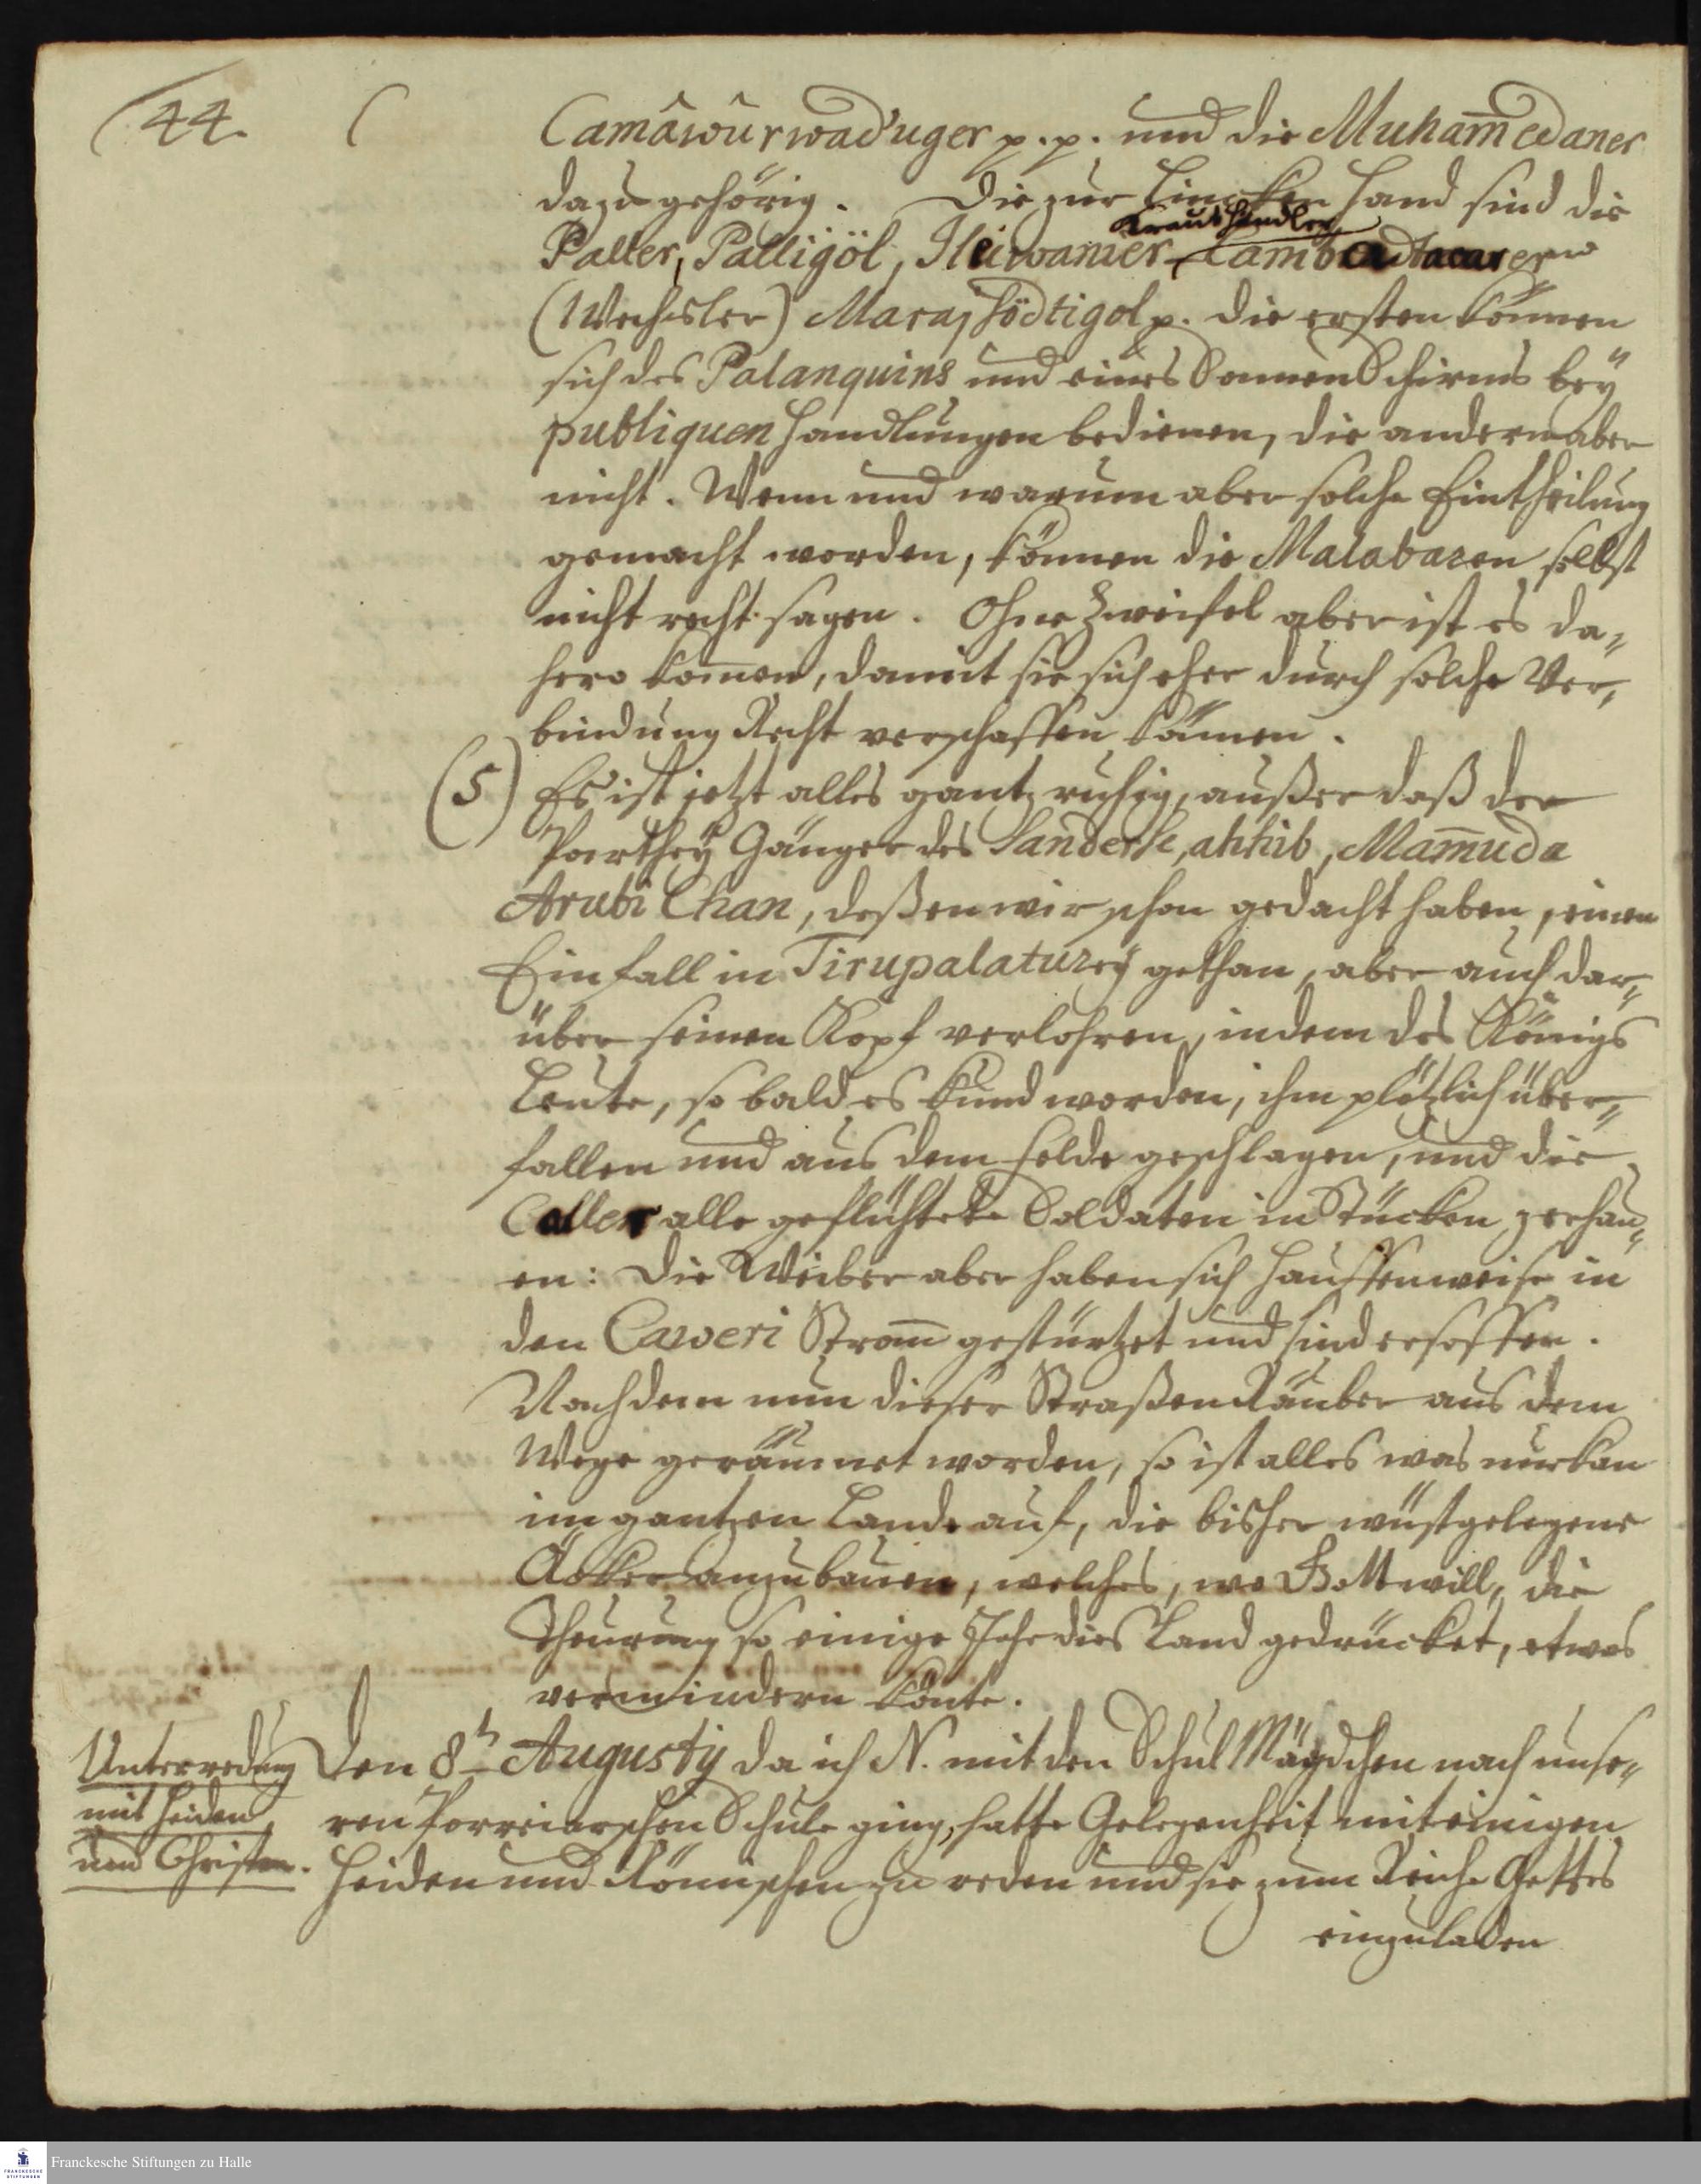 44.
Camâwûrwad'uger p.p. und die Muham̄edaner
dazu gehörig. Die zur Lincken Hand sind die
Krauthändler
Paller, Palligöl, Ileiwanier
(Wechsler) Marajsödtigol p. die ersten können
sich des Palanquins und eines SonnenSchirms beÿ
publiquen Handlungen bedienen, die andern aber
nicht. Wenn und warum aber solche Eintheilung
gemacht worden, können die Malabaren selbst
nicht recht sagen. Ohne Zweifel aber ist es da„
hero kom̄en, damit sie sich eher durch solche Ver„
bindung Recht verschaffen können.
(5) Es ist jetzt alles gantz ruhig, außer daß der
Partheÿ Gänger des Sandersahhib, Mam̄uda
Arubi Chan, deßen wir schon gedacht haben, einen
Einfall in Tirupalatureÿ gethan, aber auch dar„
über seinen Kopf verlohren, indem des Königs
Leute, so bald es kund worden, ihn plötzlich über„
fallen und aus dem Felde geschlagen, und die
Caller alle geflüchtete Soldaten in Stücken zerhau„
en: Die Weiber aber haben sich hauffenweise in
den Caweri Strom̄ gestürtzet und sind ersoffen.
Nachdem nun dieser StraßenRäuber aus dem
Wege geräumet worden, so ist alles was nur kan
im gantzen Lande auf, die bisher wüstgelegene
Äcker anzubauen, welches, wo Gott will, die
Theurung so einige Jahr dies Land gedrücket, etwas
vermindern könte.
Unterredung
mit Heiden
und Christen.
Den 8t Augustÿ da ich N. mit den Schul Mägdchen nach unse„
ren Parreiarschen Schule ging, hatte Gelegenheit mit einigen
Heiden und Römischen zu reden und sie zum Reiche Gottes
einzuladen
Franckesche Stiftungen zu Halle